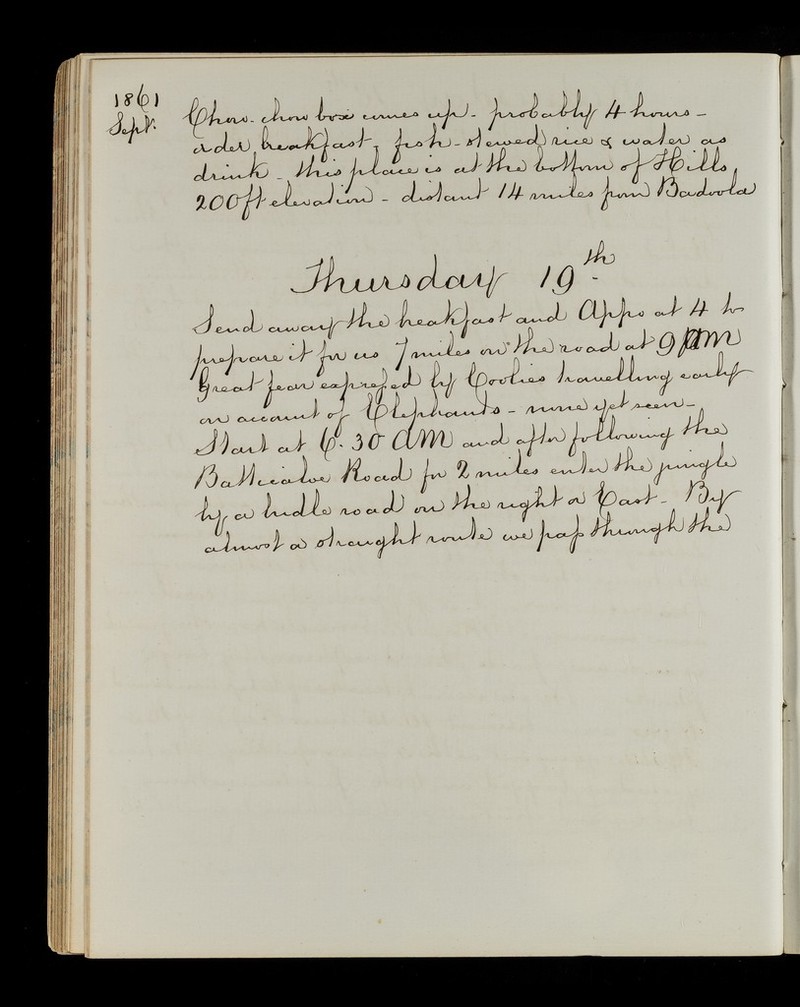 1861
Sept.
Chow-chow box comes up - probably 4 hours -
order breakfast, fish - stewed rice & water as
drink - this place is at the bottom of Hills,
200 ft elevation - distant 14 miles from Badoola
Thursday 19th.
Send away the breakfast and Appo at 4 to
prepare it for us 7 miles on the road at 9 AM
Great fear expressed by Coolies travelling early
on account of Elephants - none yet seen -
Start at 6.30 AM and after following the
Batticaloe Road for 2 miles enter the jungle
by a bridle road on the right or East - By
almost a straught route we pass through the